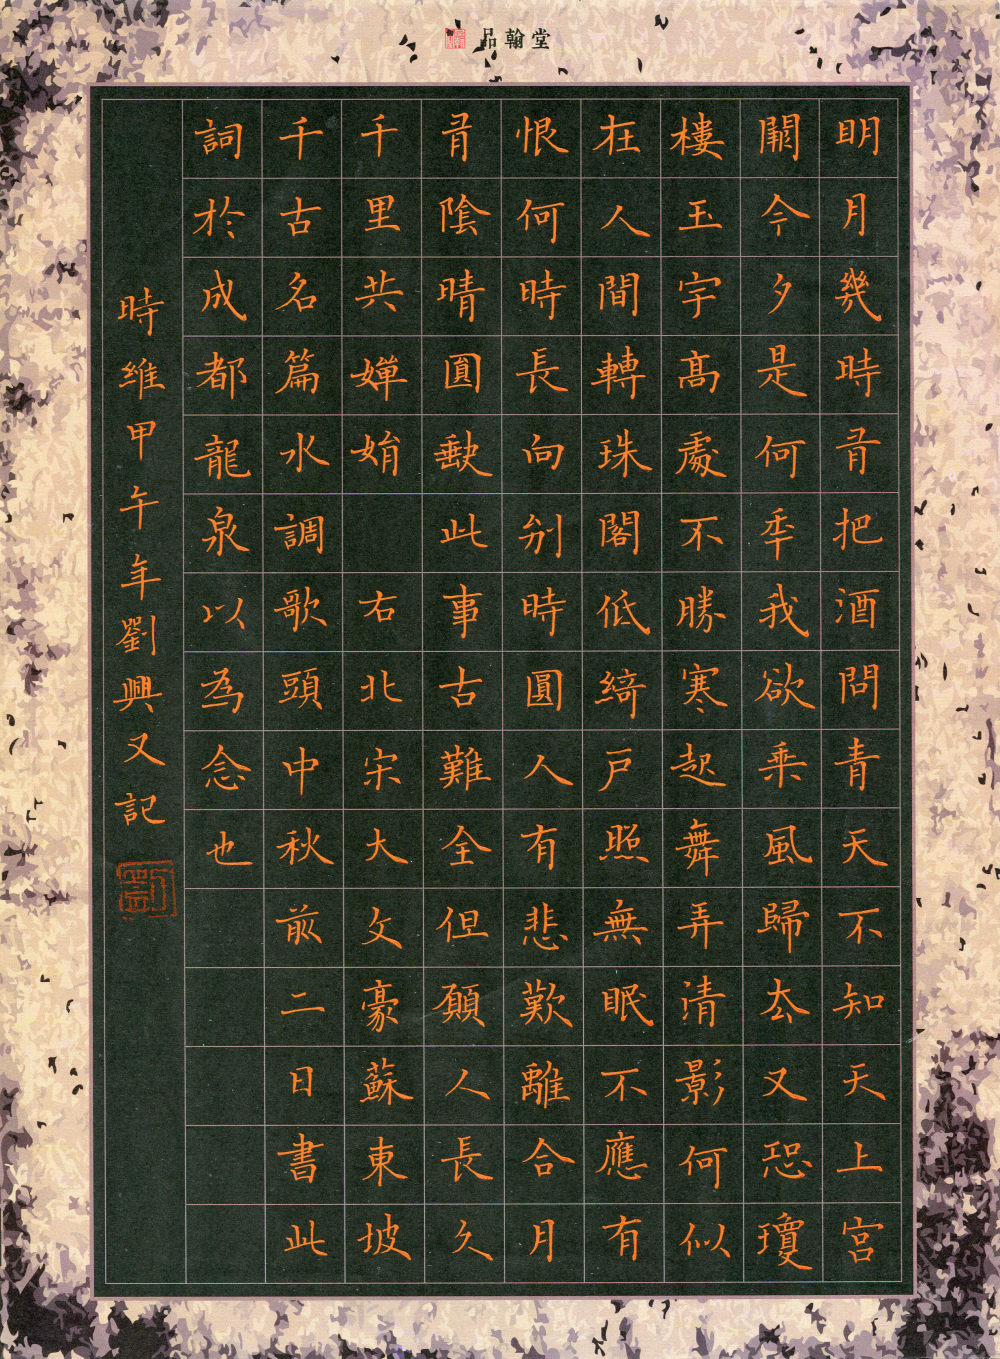 品翰堂
明月幾時有把酒問青天不知天上宮
闕今夕是何年我欲乘風歸去又恐瓊
樓玉宇高處不勝寒起舞弄清影何似
在人間轉珠閣低綺戶照無眠不應有
恨何時長向別時圓人有悲歡離合月
有陰晴圓缺此事古難全但願人長久
千里共嬋娟 右北宋大文豪蘇東坡
千古名篇水調歌頭中秋前二日書此
詞於成都龍泉以為念也
時維甲午年劉興又記